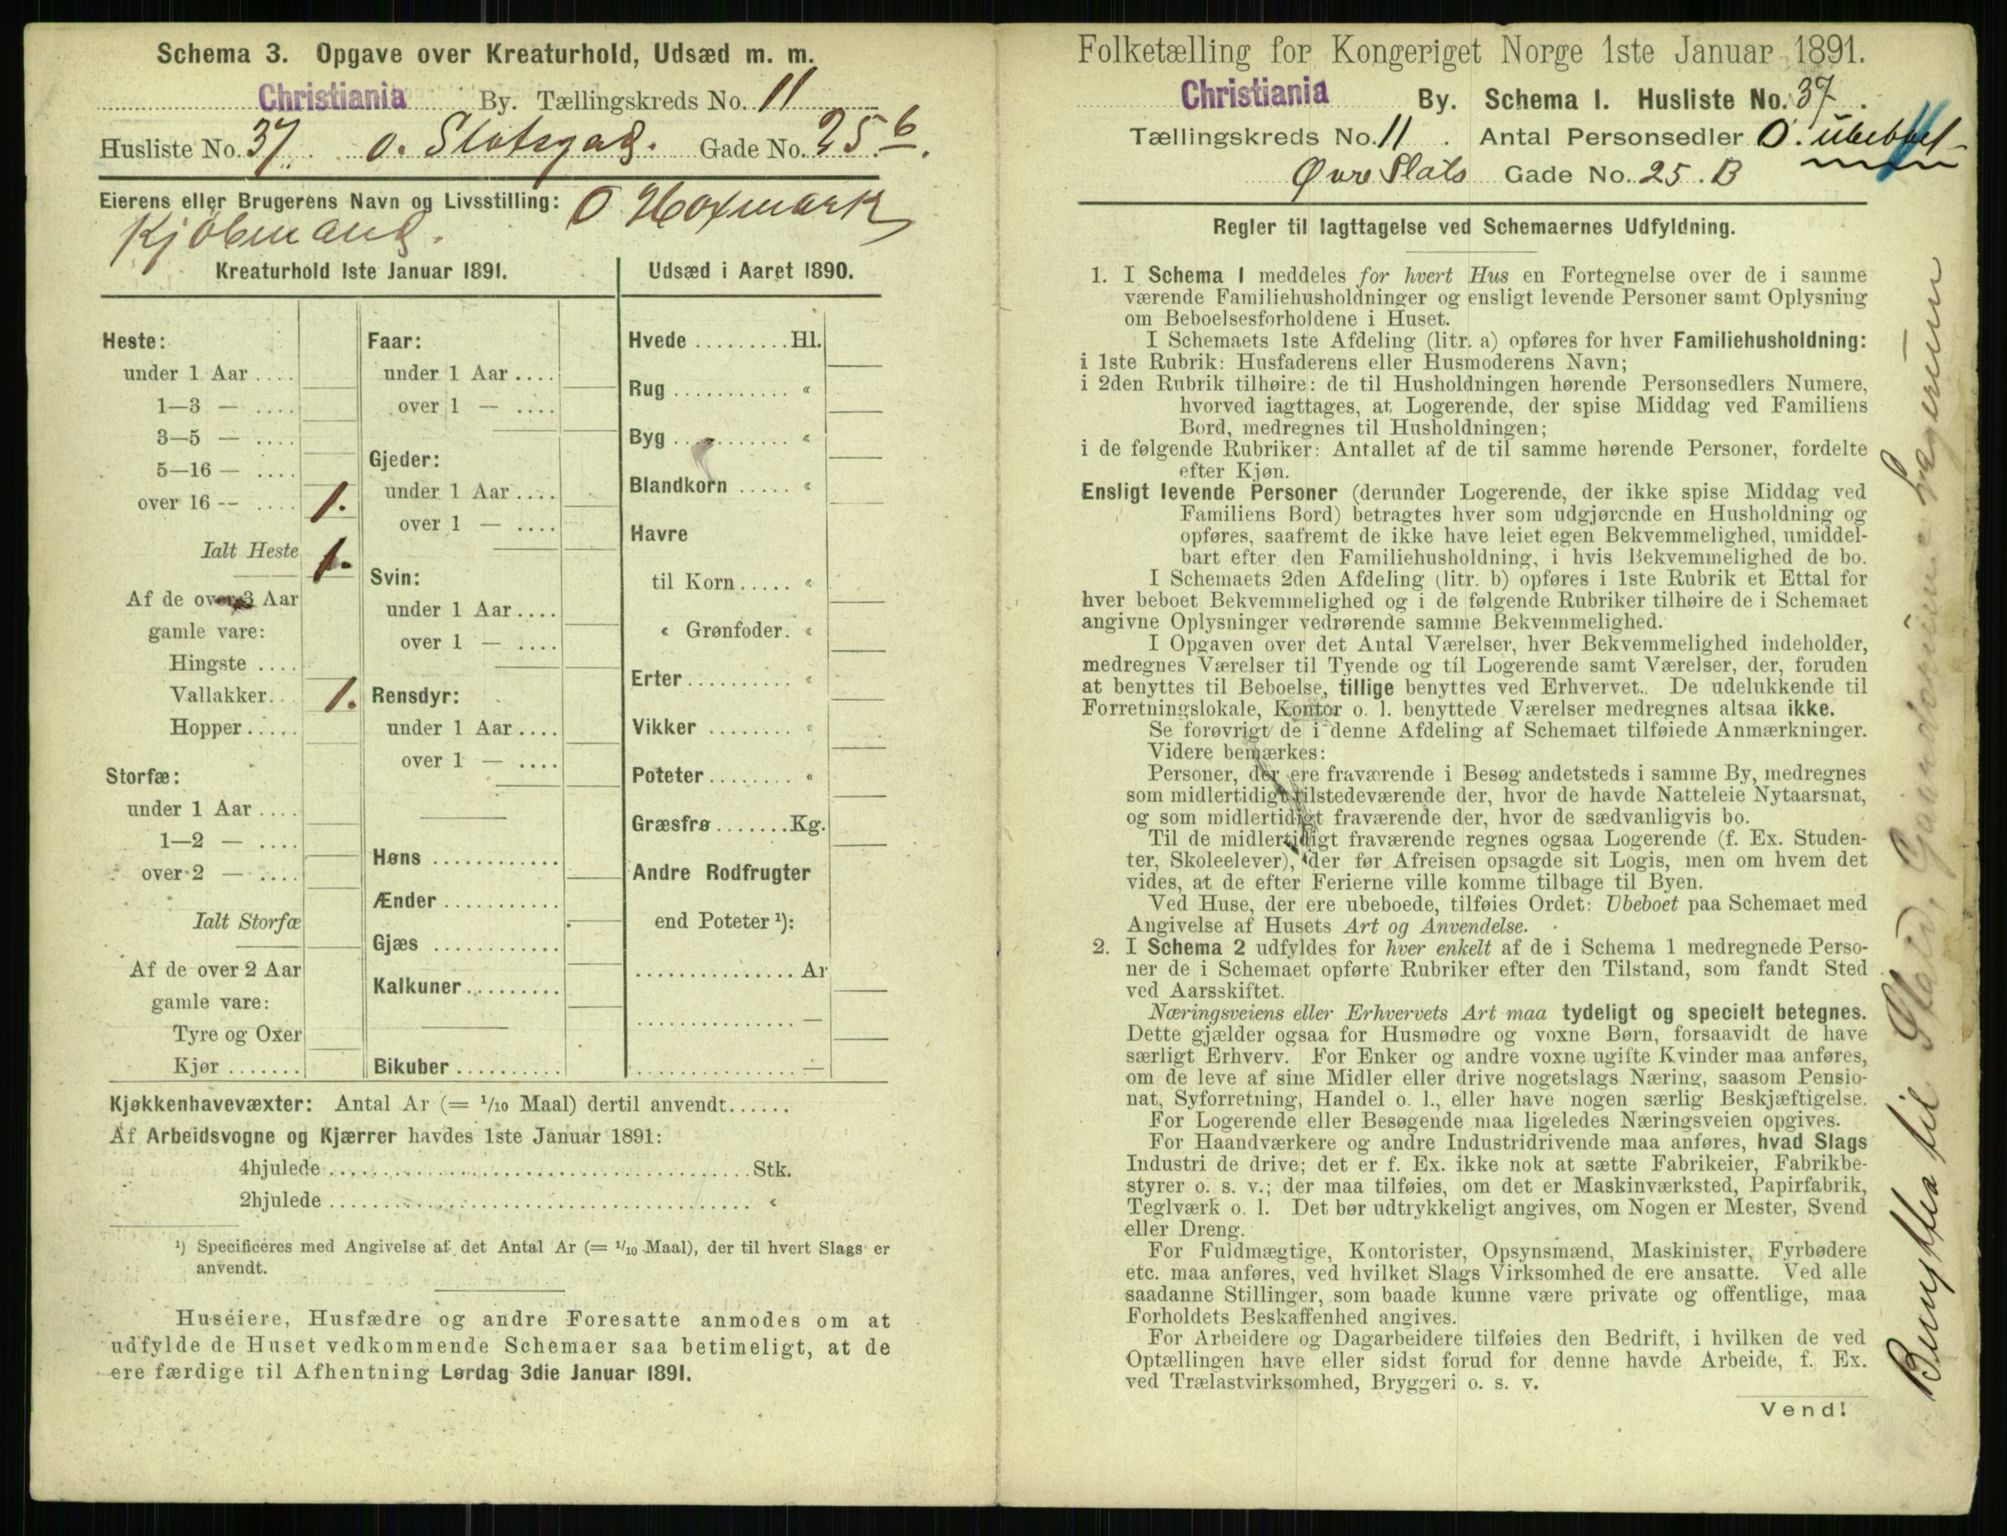 Schema 3. Opgave over Kreaturhold, Udsæd m. m.
Christiania By. Tællingskreds No. 11
Husliste No. 37 o. Slotsgad. Gade No. 25 b.
Eierens eller Brugerens Navn og Livsstilling: O Hoxmark
Kjøbmand.
Kreaturhold 1ste Januar 1891.
Heste:
under 1 Aar ....
1—3 — ....
3—5 — ....
5—16 — ....
over 16 -- .... 1.
Ialt Heste 1.
Af de over 3 Aar
gamle vare:
Hingste ....
Vallakker.. 1.
Hopper.....
Storfæ:
under 1 Aar ....
1—2 — ....
over 2 — ....
Ialt Storfæ
Af de over 2 Aar
gamle vare:
Tyre og Oxer
Kjør .......
Faar:
under 1 Aar ....
over 1 — ....
Gjeder:
under 1 Aar ....
over 1 — ....
Svin:
under 1 Aar ....
over 1 — ....
Rensdyr:
under 1 Aar ....
over 1 — ....
Høns ............
Ænder ...........
Gjæs ............
Kalkuner.........
Bikuber ..........
Udsæd i Aaret 1890.
Hvede .........Hl.
Rug ........... «
Byg ........... «
Blandkorn ..... «
Havre
til Korn..... «
« Grønfoder. «
Erter.......... «
Vikker ........ «
Poteter........ «
Græsfrø.......Kg.
Andre Rodfrugter
end Poteter ¹):
...............Ar
............... —
............... —
Kjøkkenhavevæxter: Antal Ar (= 1/10 Maal) dertil anvendt......
Af Arbeidsvogne og Kjærrer havdes 1ste Januar 1891:
4hjulede ........................................Stk.
2hjulede ........................................ «
¹) Specificeres med Angivelse af det Antal Ar (= 1/10 Maal), der til hvert Slags er
anvendt.
Huseiere, Husfædre og andre Foresatte anmodes om at
udfylde de Huset vedkommende Schemaer saa betimeligt, at de
ere færdige til Afhentning Lørdag 3die Januar 1891.
Folketælling for Kongeriget Norge 1ste Januar 1891.
Christiania By. Schema I. Husliste No. 37.
Tællingskreds No. 11. Antal Personsedler 0. ubeboet
Øvre Slots Gade No. 25. B
Regler til Iagttagelse ved Schemaernes Udfyldning.
1. I Schema 1 meddeles for hvert Hus en Fortegnelse over de i samme
værende Familiehusholdninger og ensligt levende Personer samt Oplysning
om Beboelsesforholdene i Huset.
I Schemaets 1ste Afdeling (litr. a) opføres for hver Familiehusholdning:
i 1ste Rubrik: Husfaderens eller Husmoderens Navn;
i 2den Rubrik tilhøire: de til Husholdningen hørende Personsedlers Numere,
hvorved iagttages, at Logerende, der spise Middag ved Familiens
Bord, medregnes til Husholdningen;
i de følgende Rubriker: Antallet af de til samme hørende Personer, fordelte
efter Kjøn.
Ensligt levende Personer (derunder Logerende, der ikke spise Middag ved
Familiens Bord) betragtes hver som udgjørende en Husholdning og
opføres, saafremt de ikke have leiet egen Bekvemmelighed, umiddel-
bart efter den Familiehusholdning, i hvis Bekvemmelighed de bo.
I Schemaets 2den Afdeling (litr. b) opføres i 1ste Rubrik et Ettal for
hver beboet Bekvemmelighed og i de følgende Rubriker tilhøire de i Schemaet
angivne Oplysninger vedrørende samme Bekvemmelighed.
I Opgaven over det Antal Værelser, hver Bekvemmelighed indeholder,
medregnes Værelser til Tyende og til Logerende samt Værelser, der, foruden
at benyttes til Beboelse, tillige benyttes ved Erhvervet. De udelukkende til
Forretningslokale, Kontor o. l. benyttede Værelser medregnes altsaa ikke.
Se forøvrigt de i denne Afdeling af Schemaet tilføiede Anmærkninger.
Videre bemærkes:
Personer, der ere fraværende i Besøg andetsteds i samme By, medregnes
som midlertidigt tilstedeværende der, hvor de havde Natteleie Nytaarsnat,
og som midlertidigt fraværende der, hvor de sædvanligvis bo.
Til de midlertidigt fraværende regnes ogsaa Logerende (f. Ex. Studen-
ter, Skoleelever), der før Afreisen opsagde sit Logis, men om hvem det
vides, at de efter Ferierne ville komme tilbage til Byen.
Ved Huse, der ere ubeboede, tilføies Ordet: Ubeboet paa Schemaet med
Angivelse af Husets Art og Anvendelse.
2. I Schema 2 udfyldes for hver enkelt af de i Schema 1 medregnede Perso-
ner de i Schemaet opførte Rubriker efter den Tilstand, som fandt Sted
ved Aarsskiftet.
Næringsveiens eller Erhvervets Art maa tydeligt og specielt betegnes.
Dette gjælder ogsaa for Husmødre og voxne Børn, forsaavidt de have
særligt Erhverv. For Enker og andre voxne ugifte Kvinder maa anføres,
om de leve af sine Midler eller drive nogetslags Næring, saasom Pensio-
nat, Syforretning, Handel o. l., eller have nogen særlig Beskjæftigelse.
For Logerende eller Besøgende maa ligeledes Næringsveien opgives.
For Haandværkere og andre Industridrivende maa anføres, hvad Slags
Industri de drive; det er f. Ex. ikke nok at sætte Fabrikeier, Fabrikbe-
styrer o. s. v.; der maa tilføies, om det er Maskinværksted, Papirfabrik,
Teglværk o. l. Det bør udtrykkeligt angives, om Nogen er Mester, Svend
eller Dreng.
For Fuldmægtige, Kontorister, Opsynsmænd, Maskinister, Fyrbødere
etc. maa anføres, ved hvilket Slags Virksomhed de ere ansatte. Ved alle
saadanne Stillinger, som baade kunne være private og offentlige, maa
Forholdets Beskaffenhed angives.
For Arbeidere og Dagarbeidere tilføies den Bedrift, i hvilken de ved
Optællingen have eller sidst forud for denne havde Arbeide, f. Ex.
ved Trælastvirksomhed, Bryggeri o. s. v.
Vend!
Benyttes til Stald,